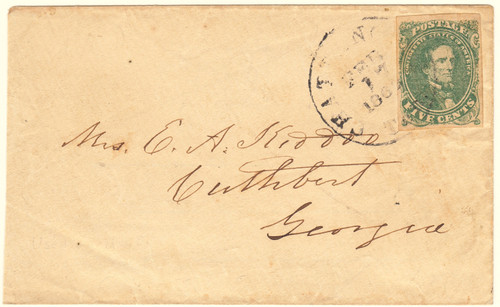 POSTAGE
CONFEDERATE STATES OF AMERICA
FIVE CENTS
CHATT
FEB
186
Mrs. E. A. Kiddoo
Cuthbert
Georgia